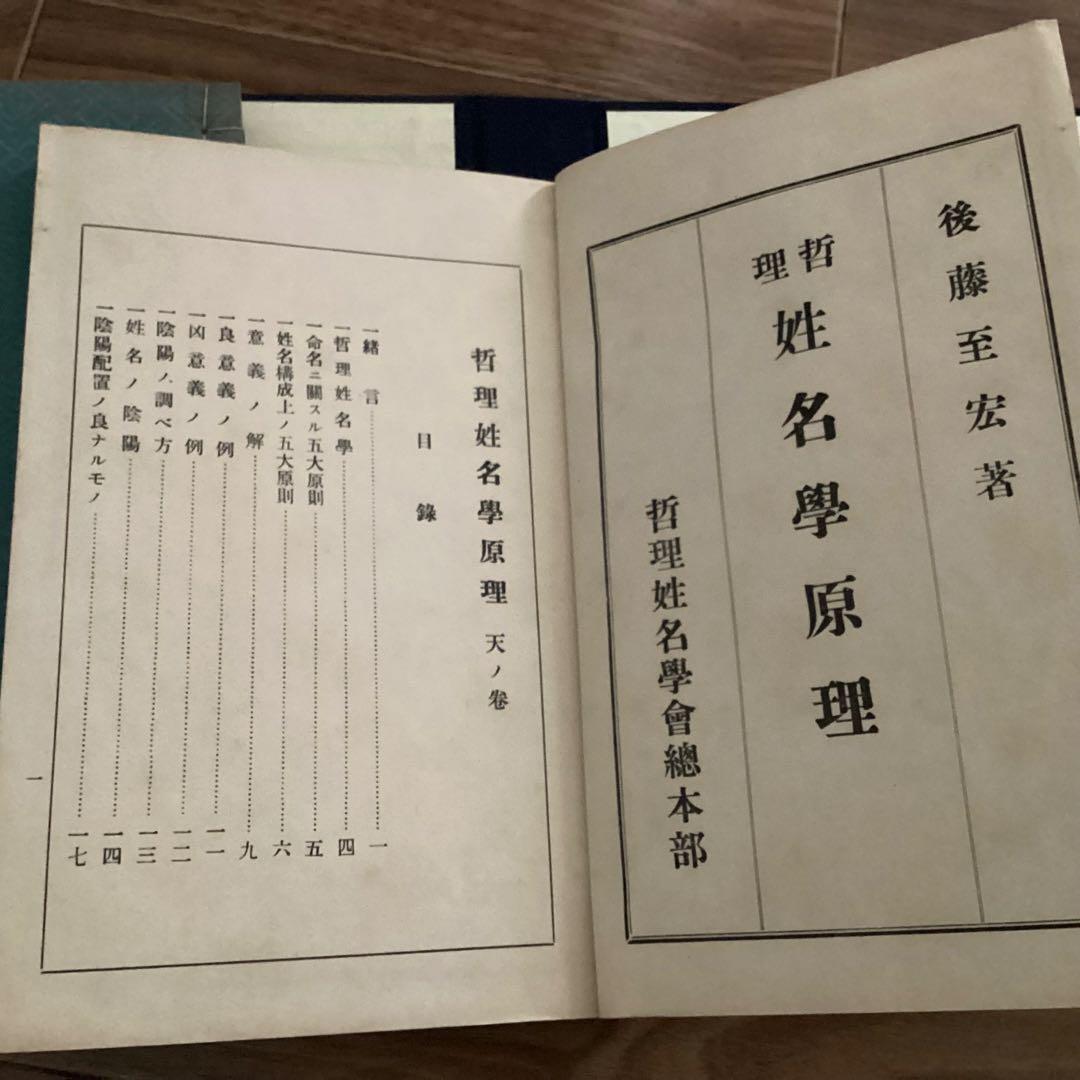 後藤至宏著
哲理 姓名學原理
哲理姓名學會總本部
哲理姓名學原理 天ノ卷
目錄
一緒言……一
一哲理姓名學……四
一命名ニ關スル五大原則……五
一姓名構成上ノ五大原則……六
一意義ノ解……九
一良意義ノ例……一一
一凶意義ノ例……一二
一陰陽ノ調べ方……一三
一姓名ノ陰陽……一四
一陰陽配置ノ良ナルモノ……一七
一